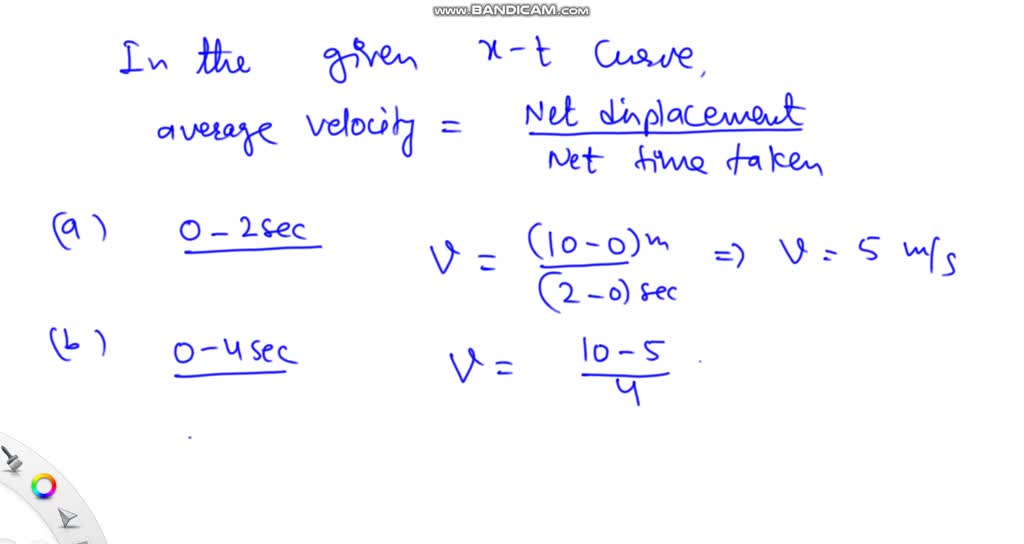 www.BANDICAM.com
In the given x-t Curve,
average velocity = Net displacement / Net time taken
(a) 0-2sec V = (10-0)m / (2-0)sec => V = 5 m/s
(b) 0-4sec V = 10-5 / 4